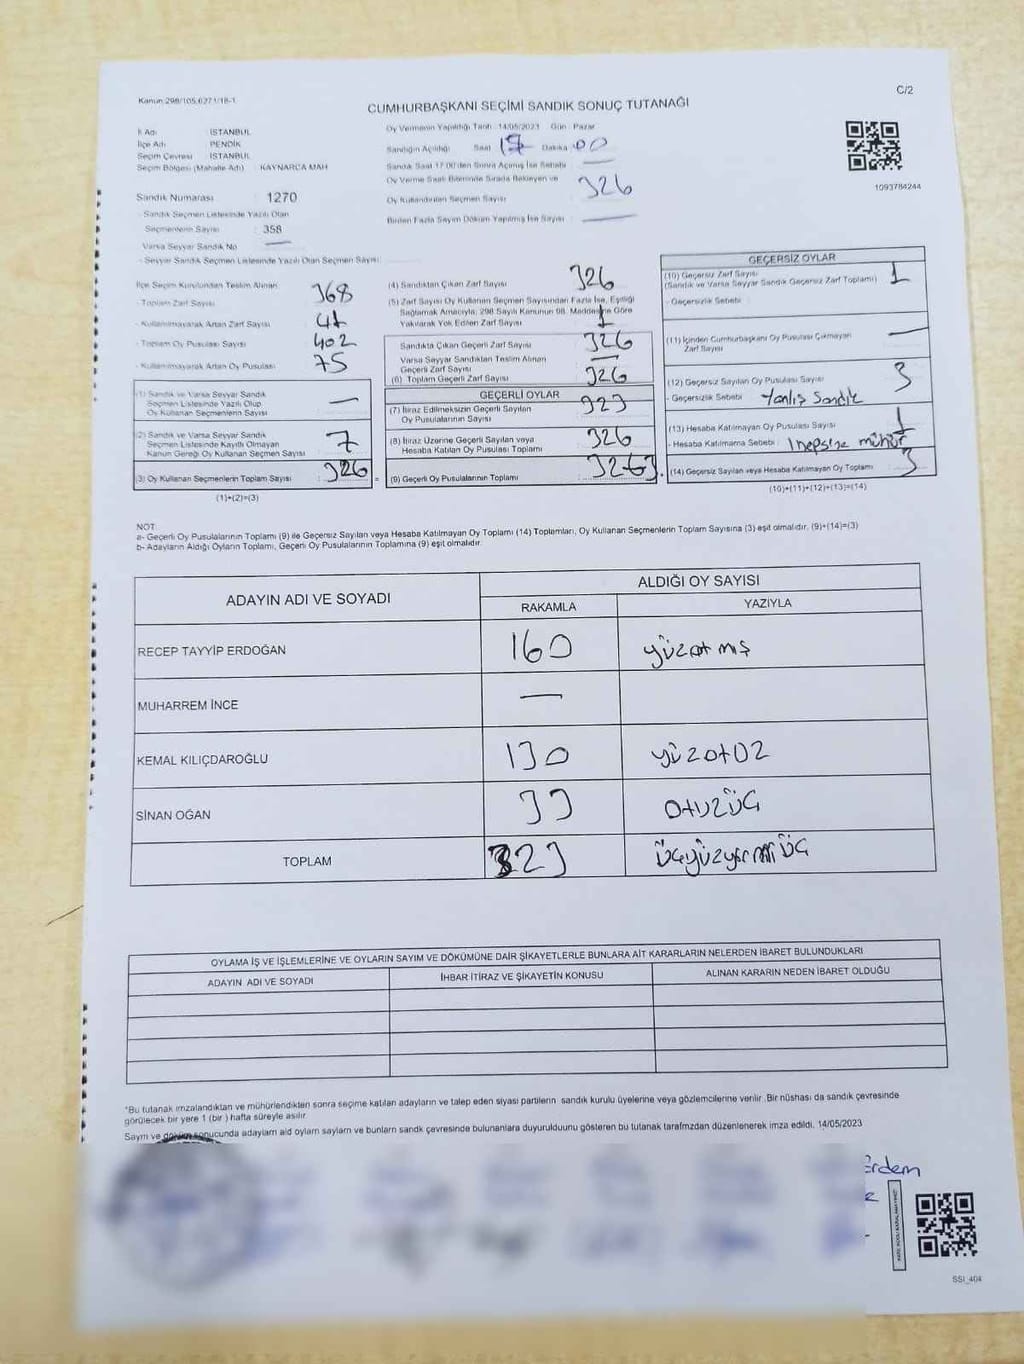 Kanun:298/105,6271/18-1
C/2
CUMHURBAŞKANI SEÇİMİ SANDIK SONUÇ TUTANAĞI
İl Adı : İSTANBUL
İlçe Adı : PENDİK
Seçim Çevresi : İSTANBUL
Seçim Bölgesi (Mahalle Adı) : KAYNARCA MAH
Oy Vermenin Yapıldığı Tarih : 14/05/2023 Gün : Pazar
Sandığın Açıldığı Saat Dakika : 00
Sandık Saat 17:00'den Sonra Açılmış İse Sebebi :
Oy Verme Saati Bitiminde Sırada Bekleyen ve
Oy Kullandırılan Seçmen Sayısı : 326
Birden Fazla Sayım Döküm Yapılmış İse Sayısı :
1093784244
Sandık Numarası : 1270
- Sandık Seçmen Listesinde Yazılı Olan
Seçmenlerin Sayısı : 358
Varsa Seyyar Sandık No : —
- Seyyar Sandık Seçmen Listesinde Yazılı Olan Seçmen Sayısı :
İlçe Seçim Kurulundan Teslim Alınan
- Toplam Zarf Sayısı : 368
- Kullanılmayarak Artan Zarf Sayısı : 41
- Toplam Oy Pusulası Sayısı : 402
- Kullanılmayarak Artan Oy Pusulası : 75
(1) Sandık ve Varsa Seyyar Sandık
Seçmen Listesinde Yazılı Olup
Oy Kullanan Seçmenlerin Sayısı : —
(2) Sandık ve Varsa Seyyar Sandık
Seçmen Listesinde Kayıtlı Olmayan
Kanun Gereği Oy Kullanan Seçmen Sayısı : 7
(3) Oy Kullanan Seçmenlerin Toplam Sayısı : 326
(1)+(2)=(3)
(4) Sandıktan Çıkan Zarf Sayısı : 326
(5) Zarf Sayısı Oy Kullanan Seçmen Sayısından Fazla İse, Eşitliği
Sağlamak Amacıyla, 298 Sayılı Kanunun 98. Maddesine Göre
Yakılarak Yok Edilen Zarf Sayısı : 1
Sandıkta Çıkan Geçerli Zarf Sayısı : 326
Varsa Seyyar Sandıktan Teslim Alınan
Geçerli Zarf Sayısı : —
(6) Toplam Geçerli Zarf Sayısı : 326
GEÇERLİ OYLAR
(7) İtiraz Edilmeksizin Geçerli Sayılan
Oy Pusulalarının Sayısı : 323
(8) İtiraz Üzerine Geçerli Sayılan veya
Hesaba Katılan Oy Pusulası Toplamı : 326
(9) Geçerli Oy Pusulalarının Toplamı :
GEÇERSİZ OYLAR
(10) Geçersiz Zarf Sayısı
(Sandık ve Varsa Seyyar Sandık Geçersiz Zarf Toplamı) : 1
- Geçersizlik Sebebi :
(11) İçinden Cumhurbaşkanı Oy Pusulası Çıkmayan
Zarf Sayısı : —
(12) Geçersiz Sayılan Oy Pusulası Sayısı : 3
- Geçersizlik Sebebi : Yanlış Sandık
(13) Hesaba Katılmayan Oy Pusulası Sayısı : 1
- Hesaba Katılmama Sebebi : 1 hepsine mühür
(14) Geçersiz Sayılan veya Hesaba Katılmayan Oy Toplamı : 3
(10)+(11)+(12)+(13)=(14)
NOT:
a- Geçerli Oy Pusulalarının Toplamı (9) ile Geçersiz Sayılan veya Hesaba Katılmayan Oy Toplamı (14) Toplamları, Oy Kullanan Seçmenlerin Toplam Sayısına (3) eşit olmalıdır. (9)+(14)=(3)
b- Adayların Aldığı Oyların Toplamı, Geçerli Oy Pusulalarının Toplamına (9) eşit olmalıdır.
ADAYIN ADI VE SOYADI
ALDIĞI OY SAYISI
RAKAMLA YAZIYLA
RECEP TAYYİP ERDOĞAN 160 yüzatmış
MUHARREM İNCE —
KEMAL KILIÇDAROĞLU 130 yüzotuz
SİNAN OĞAN 33 otuzüç
TOPLAM 323 üçyüzyirmiüç
OYLAMA İŞ VE İŞLEMLERİNE VE OYLARIN SAYIM VE DÖKÜMÜNE DAİR ŞİKAYETLERLE BUNLARA AİT KARARLARIN NELERDEN İBARET BULUNDUKLARI
ADAYIN ADI VE SOYADI İHBAR İTİRAZ VE ŞİKAYETİN KONUSU ALINAN KARARIN NEDEN İBARET OLDUĞU
*Bu tutanak imzalandıktan ve mühürlendikten sonra seçime katılan adayların ve talep eden siyasi partilerin sandık kurulu üyelerine veya gözlemcilerine verilir. Bir nüshası da sandık çevresinde
görülecek bir yere 1 (bir ) hafta süreyle asılır.
Sayım ve döküm sonucunda adayların aldığı oyların sayıların ve bunların sandık çevresinde bulunanlara duyurulduğunu gösteren bu tutanak tarafımızdan düzenlenerek imza edildi. 14/05/2023
Erdem
SSI_404